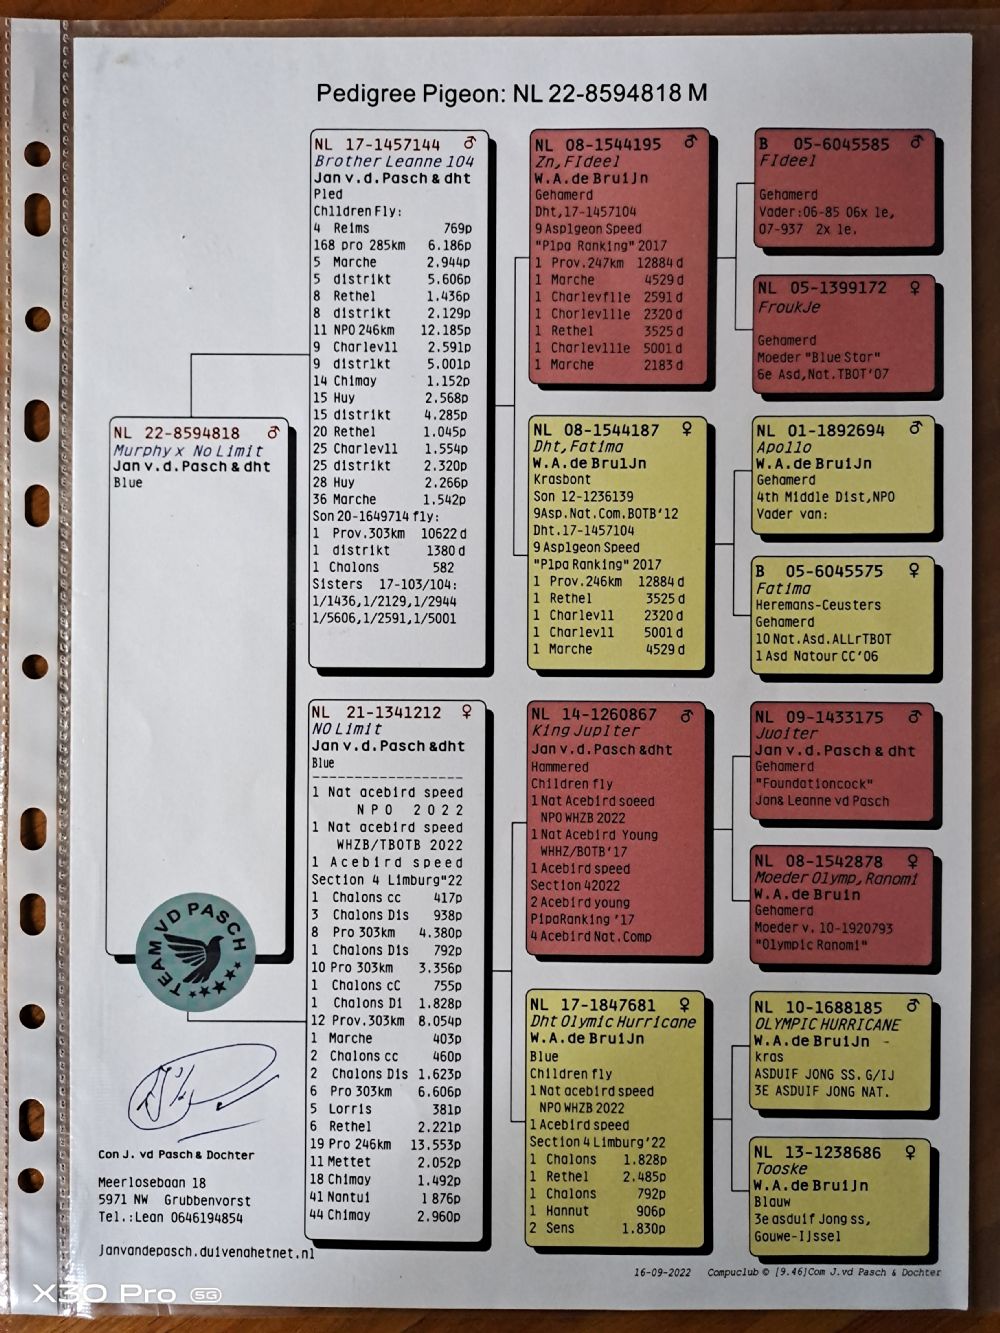 Pedigree Pigeon: NL 22-8594818 M
NL 22-8594818 ♂
Murphy x No Limit
Jan v.d.Pasch & dht
Blue
TEAM VD PASCH
Con J. vd Pasch & Dochter
Meerlosebaan 18
5971 NW Grubbenvorst
Tel.:Lean 0646194854
Janvandepasch.duivenahetnet.nl
NL 17-1457144 ♂
Brother Leanne 104
Jan v.d.Pasch & dht
Pled
Children Fly:
4 Reims 769p
168 pro 285km 6.186p
5 Marche 2.944p
5 distrikt 5.606p
8 Rethel 1.436p
8 distrikt 2.129p
11 NPO 246km 12.185p
9 Charlevll 2.591p
9 distrlkt 5.001p
14 Chimay 1.152p
15 Huy 2.568p
15 distrlkt 4.285p
20 Rethel 1.045p
25 Charlevll 1.554p
25 distrikt 2.320p
28 Huy 2.266p
36 Marche 1.542p
Son 20-1649714 fly:
1 Prov.303km 10622 d
1 distrlkt 1380 d
1 Chalons 582
Sisters 17-103/104:
1/1436,1/2129,1/2944
1/5606,1/2591,1/5001
NL 21-1341212 ♀
NO Limit
Jan v.d.Pasch &dht
Blue
-------------------
1 Nat acebird speed
N P O 2 0 2 2
1 Nat acebird speed
WHZB/TBOTB 2022
1 Acebird speed
Section 4 Limburg"22
1 Chalons cc 417p
3 Chalons Dis 938p
8 Pro 303km 4.380p
1 Chalons Dis 792p
10 Pro 303km 3.356p
1 Chalons cC 755p
1 Chalons Di 1.828p
12 Prov.303km 8.054p
1 Marche 403p
2 Chalons cc 460p
2 Chalons Dis 1.623p
6 Pro 303km 6.606p
5 Lorris 381p
6 Rethel 2.221p
19 Pro 246km 13.553p
11 Mettet 2.052p
18 Chimay 1.492p
41 Nantui 1 876p
44 Chimay 2.960p
NL 08-1544195 ♂
Zn,FIdeel
W.A.de BruIJn
Gehamerd
Dht,17-1457104
9 Asplgeon Speed
"Plpa Ranking" 2017
1 Prov.247km 12884 d
1 Marche 4529 d
1 Charlevflle 2591 d
1 Chorlevllle 2320 d
1 Rethel 3525 d
1 Charlevllle 5001 d
1 Marche 2183 d
NL 08-1544187 ♀
Dht,Fatima
W.A.de BruIJn
Krasbont
Son 12-1236139
9Asp.Nat.Com.BOTB'12
Dht.17-1457104
9 Asplgeon Speed
"Plpa Ranking" 2017
1 Prov.246km 12884 d
1 Rethel 3525 d
1 Charlevll 2320 d
1 Charlevll 5001 d
1 Marche 4529 d
NL 14-1260867 ♂
KIng JupIter
Jan v.d.Pasch &dht
Hammered
Children fly
1 Nat Acebird soeed
NPO WHZB 2022
1 Nat Acebird Young
WHHZ/BOTB'17
1 Acebird speed
Section 42022
2 Acebird young
PlpaRanking '17
4 Acebird Nat.Comp
NL 17-1847681 ♀
Dht Olymic Hurricane
W.A.de BruIJn
Blue
Children fly
1 Nat acebird speed
NPO WHZB 2022
1 Acebird speed
Section 4 Limburg'22
1 Chalons 1.828p
1 Rethel 2.485p
1 Chalons 792p
1 Hannut 906p
2 Sens 1.830p
B 05-6045585 ♂
FIdeel
Gehamerd
Vader:06-85 06x 1e,
07-937 2x 1e.
NL 05-1399172 ♀
FroukJe
Gehamerd
Moeder "Blue Star"
6e Asd,Nat.TBOT'07
NL 01-1892694 ♂
Apollo
W.A.de BruIJn
Gehamerd
4th Middle Dist,NPO
Vader van:
B 05-6045575 ♀
Fatima
Heremans-Ceusters
Gehamerd
10 Nat.Asd.ALLrTBOT
1 Asd Natour CC'06
NL 09-1433175 ♂
Juoiter
Jan v.d.Pasch & dht
Gehamerd
"Foundationcock"
Jan& Leanne vd Pasch
NL 08-1542878 ♀
Moeder Olymp,Ranomi
W.A.de Bruin
Gehamerd
Moeder v. 10-1920793
"Olympic Ranomi"
NL 10-1688185 ♂
OLYMPIC HURRICANE
W.A.de BruIJn -
kras
ASDUIF JONG SS. G/IJ
3E ASDUIF JONG NAT.
NL 13-1238686 ♀
Tooske
W.A.de BruIJn
Blauw
3e asduif Jong ss,
Gouwe-IJssel
16-09-2022 Compuclub © [9.46]Com J.vd Pasch & Dochter
X30 Pro 5G